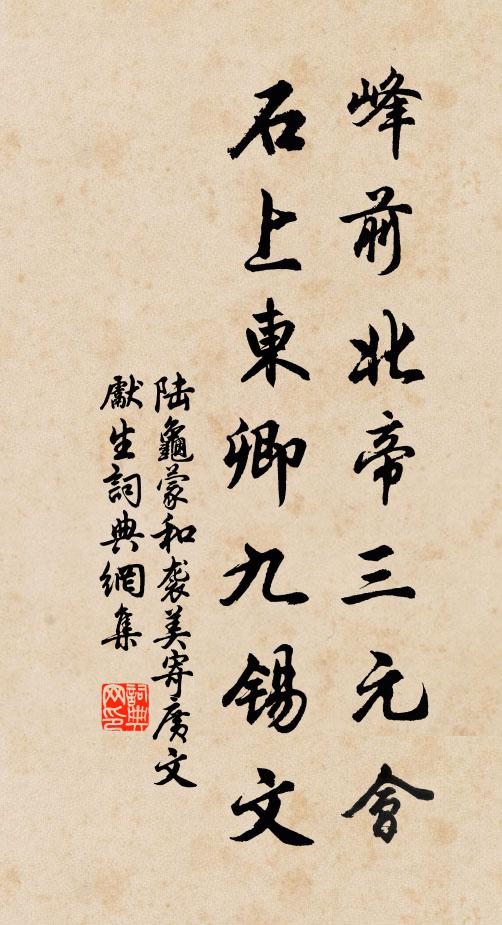 峰前北帝三元會
石上東卿九錫文
陆龜蒙和袭美寄廣文
獻生詞典網集
詞典网印